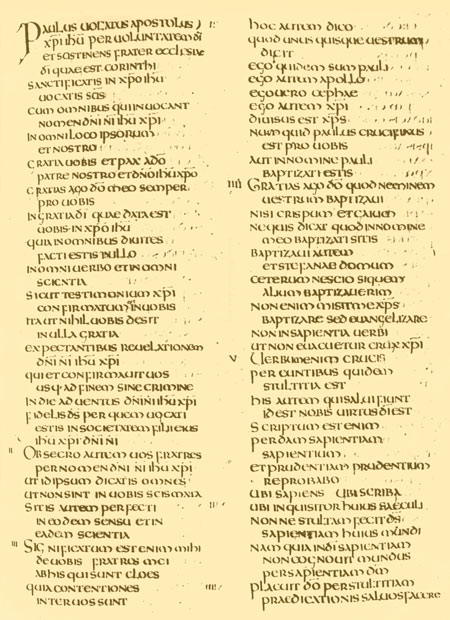 Paulus uocatus apostolus
xp̄i ihū per uoluntatem dī
et sostinens frater ecclesiae
dī quae est corinthi
sanctificatis in xp̄o ihū
uocatis scīs
cum omnibus qui inuocant
nomen dn̄i n̄i ihū xp̄i
in omni loco ipsorum
et nostro
gratia uobis et pax a dō
patre nostro et dn̄o ihū xp̄o
gratias ago dō meo semper
pro uobis
in gratia dī quae data est
uobis in xp̄o ihū
quia in omnibus diuites
facti estis in illo
in omni uerbo et in omni
scientia
sicut testimonium xp̄i
confirmatum in uobis
ita ut nihil uobis desit
in ulla gratia
expectantibus reuelationem
dn̄i n̄i ihū xp̄i
qui et confirmauit uos
usq· ad finem sine crimine
in die aduentus dn̄i n̄i ihū xp̄i
fidelis d̄s per quem uocati
estis in societatem filii eius
ihū xp̄i dn̄i n̄i
II Obsecro autem uos fratres
per nomen dn̄i n̄i ihū xp̄i
ut id ipsum dicatis omnes
ut non sint in uobis scismata
sitis autem perfecti
in eodem sensu et in
eadem scientia
III Significatum est enim mihi
de uobis fratres mei
ab his qui sunt cloes
quia contentiones
inter uos sunt
hoc autem dico
quod unus quisque uestrum
dicit
ego quidem sum pauli
ego autem apollo
ego uero cephae
ego autem xp̄i
diuisus est xp̄s
numquid paulus crucifixus
est pro uobis
aut in nomine pauli
baptizati estis
IIII Gratias ago dō quod neminem
uestrum baptizaui
nisi crispum et gaium
nequis dicat quod in nomine
meo baptizati sitis
baptizaui autem
et stefanae domum
ceterum nescio si quem
alium baptizauerim
non enim misit me xp̄s
baptizare sed euangelizare
non in sapientia uerbi
ut non euacuetur crux xp̄i
V Uerbum enim crucis
pereuntibus quidem
stultitia est
his autem qui salui fiunt
id est nobis uirtus dī est
scriptum est enim
perdam sapientiam
sapientium
et prudentiam prudentium
reprobabo
ubi sapiens ubi scriba
ubi inquisitor huius saeculi
nonne stultam fecit d̄s
sapientiam huius mundi
nam quia in dī sapientiam
non cognouit mundus
per sapientiam dm̄
placuit dō per stultitiam
praedicationis saluos facere